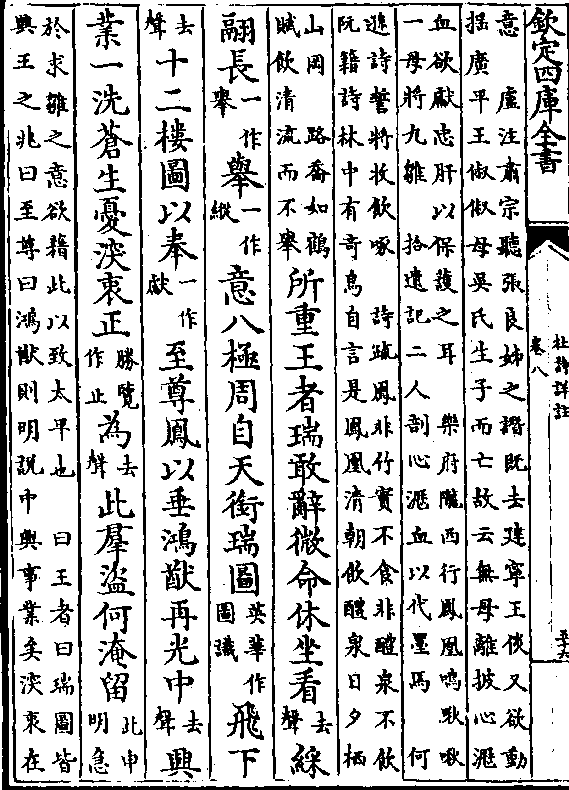 欽定四庫全書
杜詩詳註
卷八
意 盧注肅宗聽張良娣之譖既去建寧王倓又欲動
搖廣平王俶俶母吳氏生子而亡故云無母離披心瀝
血欲獻忠肝以保護之耳 樂府隴西行鳳凰鳴啾啾
一母將九雛 拾遺記二人剖心瀝血以代墨焉 何
進詩誓將牧飲啄 詩疏鳳非竹實不食非醴泉不飲
阮籍詩林中有奇鳥自言是鳳凰清朝飲醴泉日夕栖
山岡 路喬如鶴
賦飲清流而不舉
所重王者瑞敢辭微命休坐看去聲綵
翮長一作舉舉一作縱意八極周自天銜瑞圖英華作圖讖飛下
去聲十二樓圖以奉一作獻至尊鳳以垂鴻猷再光中去聲興
業一洗蒼生憂深衷正勝覽作止為去聲此羣盜何淹留此申明急
於求雛之意欲藉此以致太平也 曰王者曰瑞圖皆
興王之兆曰至尊曰鴻猷則明說中興事業矣深衷在